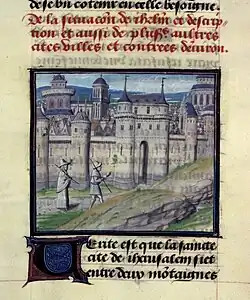 de se bn contenir en celle besoigne.
De la situacon de iherlm et descrip
tion et aussi de plusrs aultres
cites villes et contrees denuiron.
Uerite est que la saincte
cite de iherusalem siet
entre deux montaignes